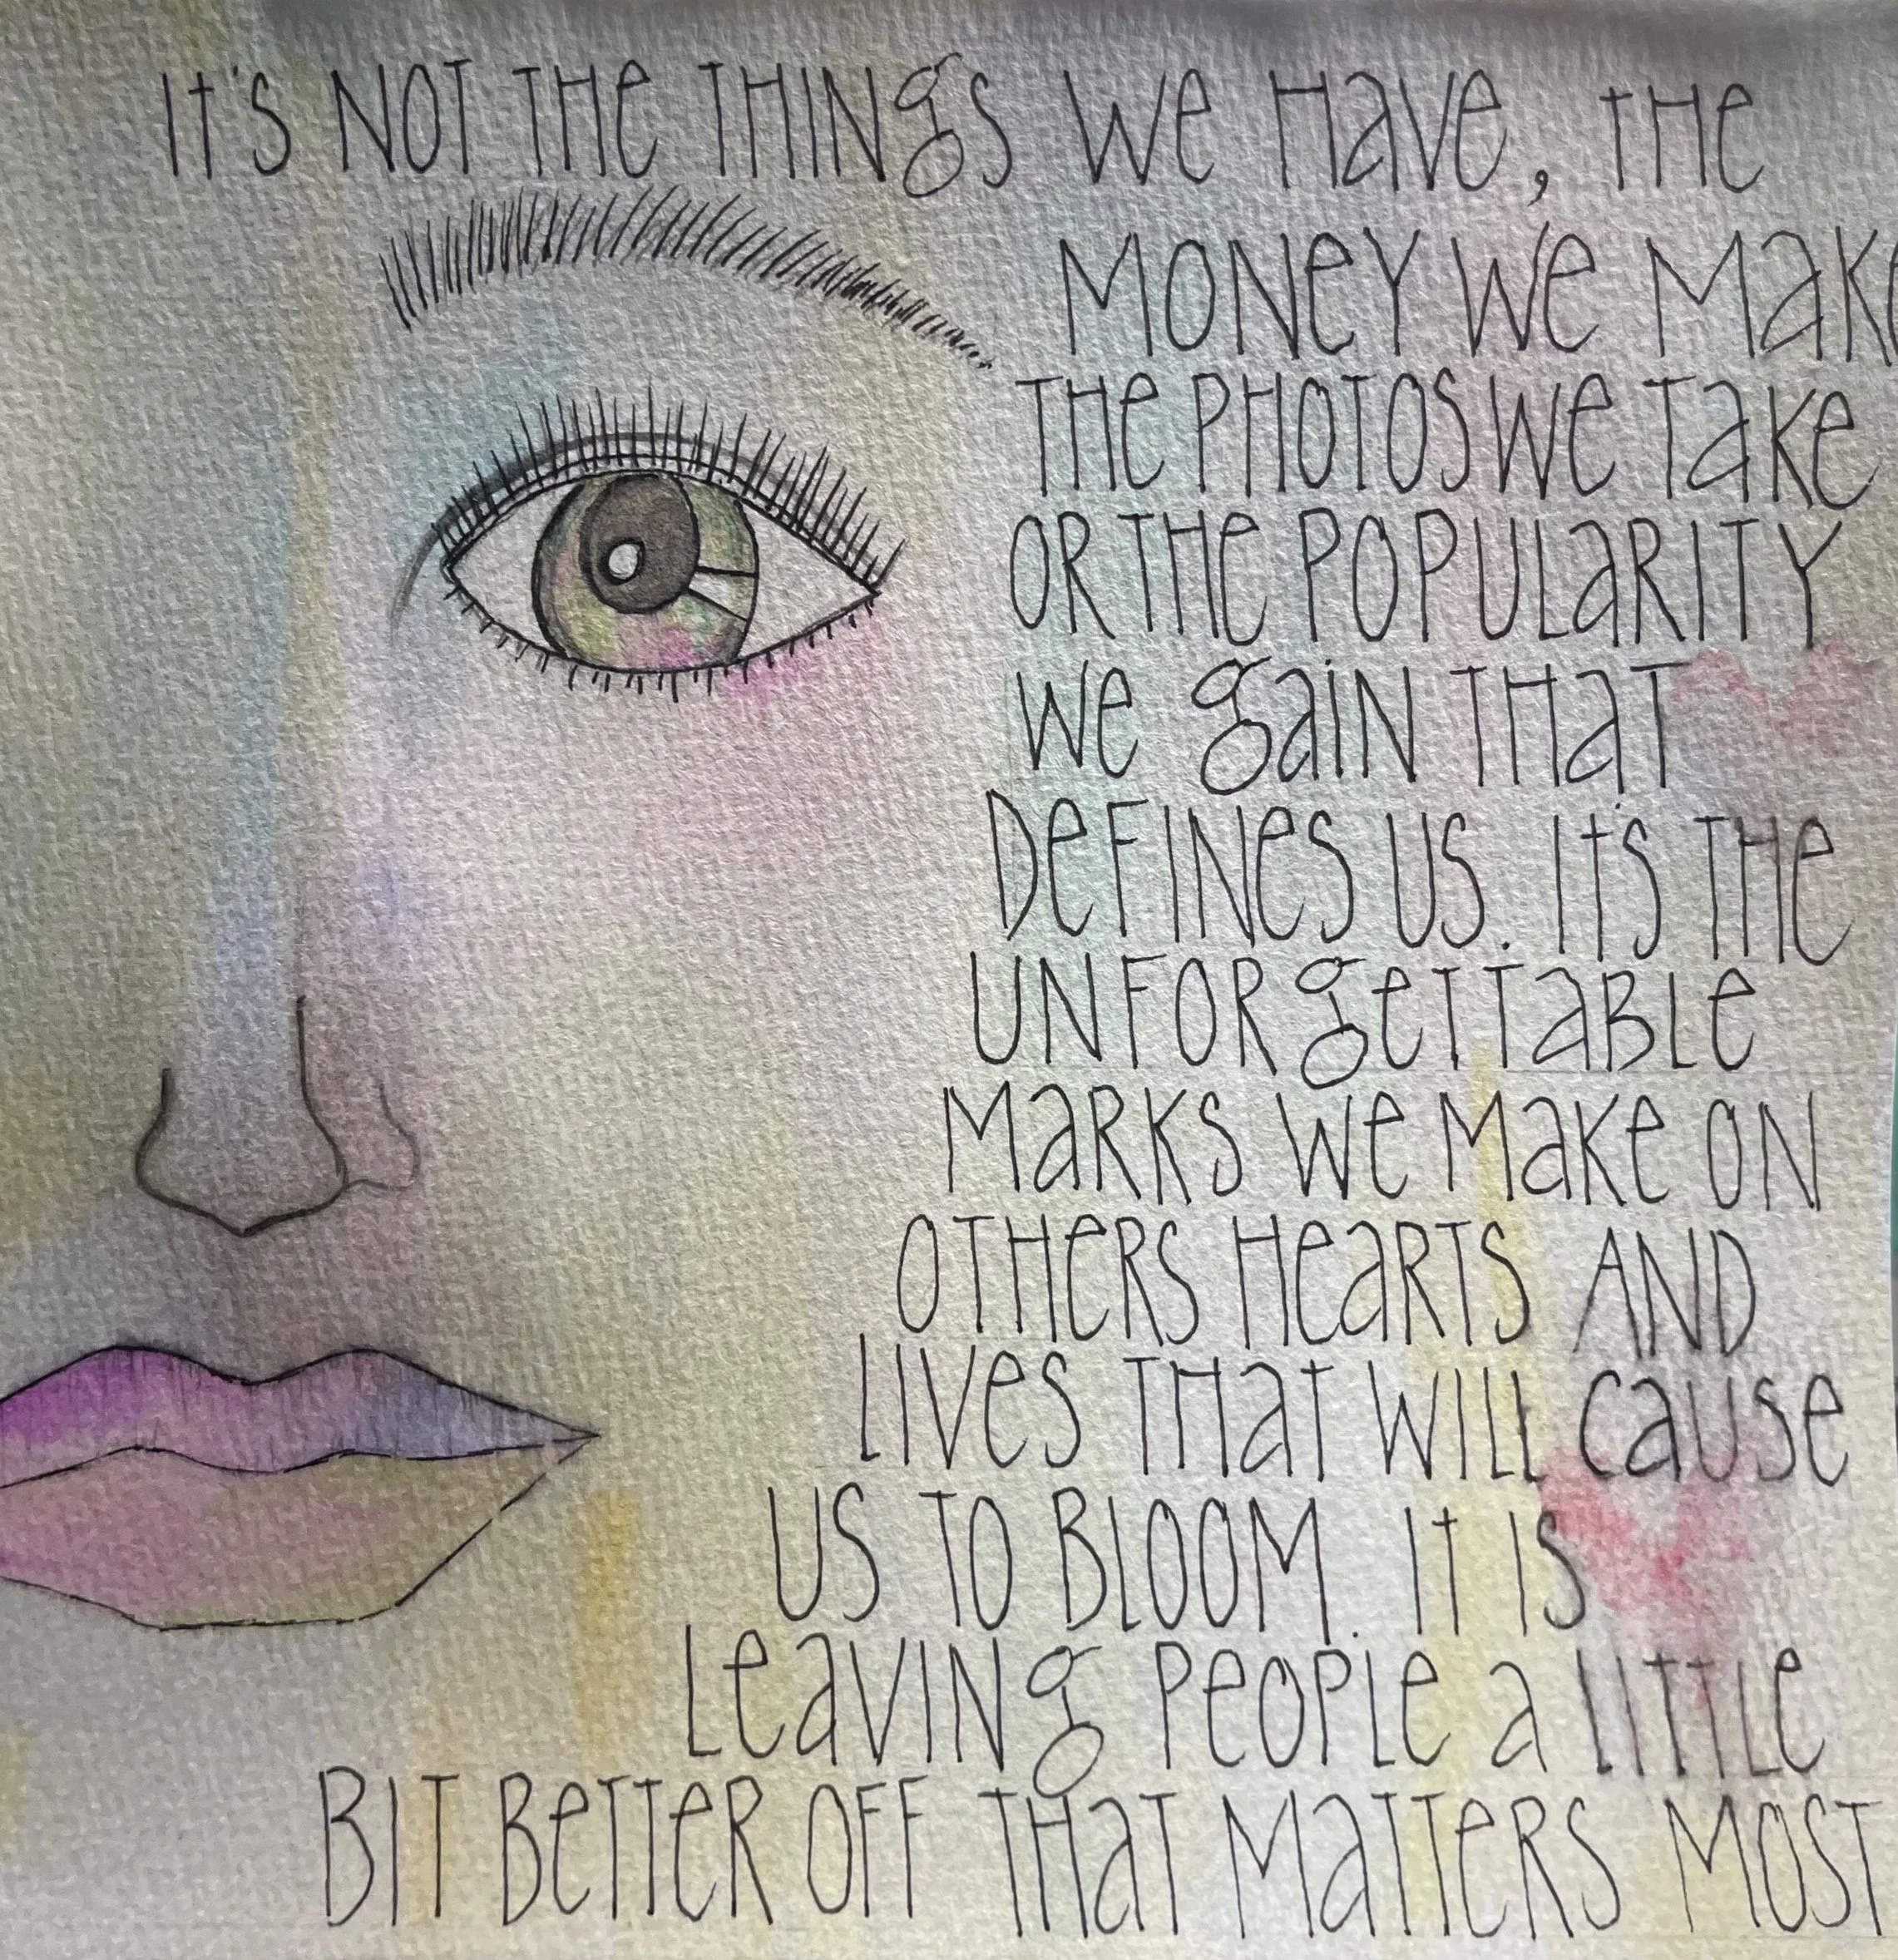 It's NOT THe THINgs We Have, THe
MONeY We Make
THe PHOTOS We Take
OR THe POPULaRITY
We gaiN THaT
DeFINes US. It's THe
UNFORgeTTaBLe
MaRKS We Make ON
OTHeRS HeaRTS AND
LIVes THaT WILL Cause
US TO BLOOM. It IS
LeaVINg PeOPLe a LITTLe
BIT BeTTeR OFF THaT MaTTeRS MOST